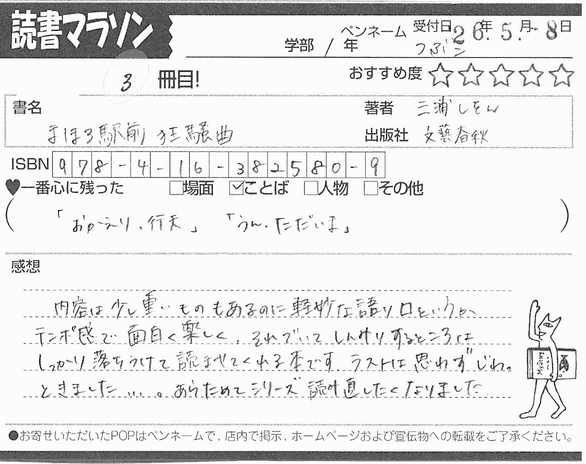 読書マラソン
学部 / 年 ペンネーム つぶこ 受付日 26年 5月 8日
3 冊目! おすすめ度 ☆☆☆☆☆
書名 著者 三浦しをん
まほろ駅前 狂騒曲 出版社 文藝春秋
ISBN 978-4-16-382580-9
♥一番心に残った □場面 ☑ことば □人物 □その他
(「おかえり、行天」 「うん、ただいま」)
感想
内容は少し重いものもあるのに軽妙な語り口というか、
テンポ感で面白く楽しく、それでいてしんみりするところは
しっかり落ちつけて読ませてくれる本です。ラストは思わずじわっ
ときました……。あらためてシリーズ読み直したくなりました
●お寄せいただいたPOPはペンネームで、店内で掲示、ホームページおよび宣伝物への転載をご了承ください。